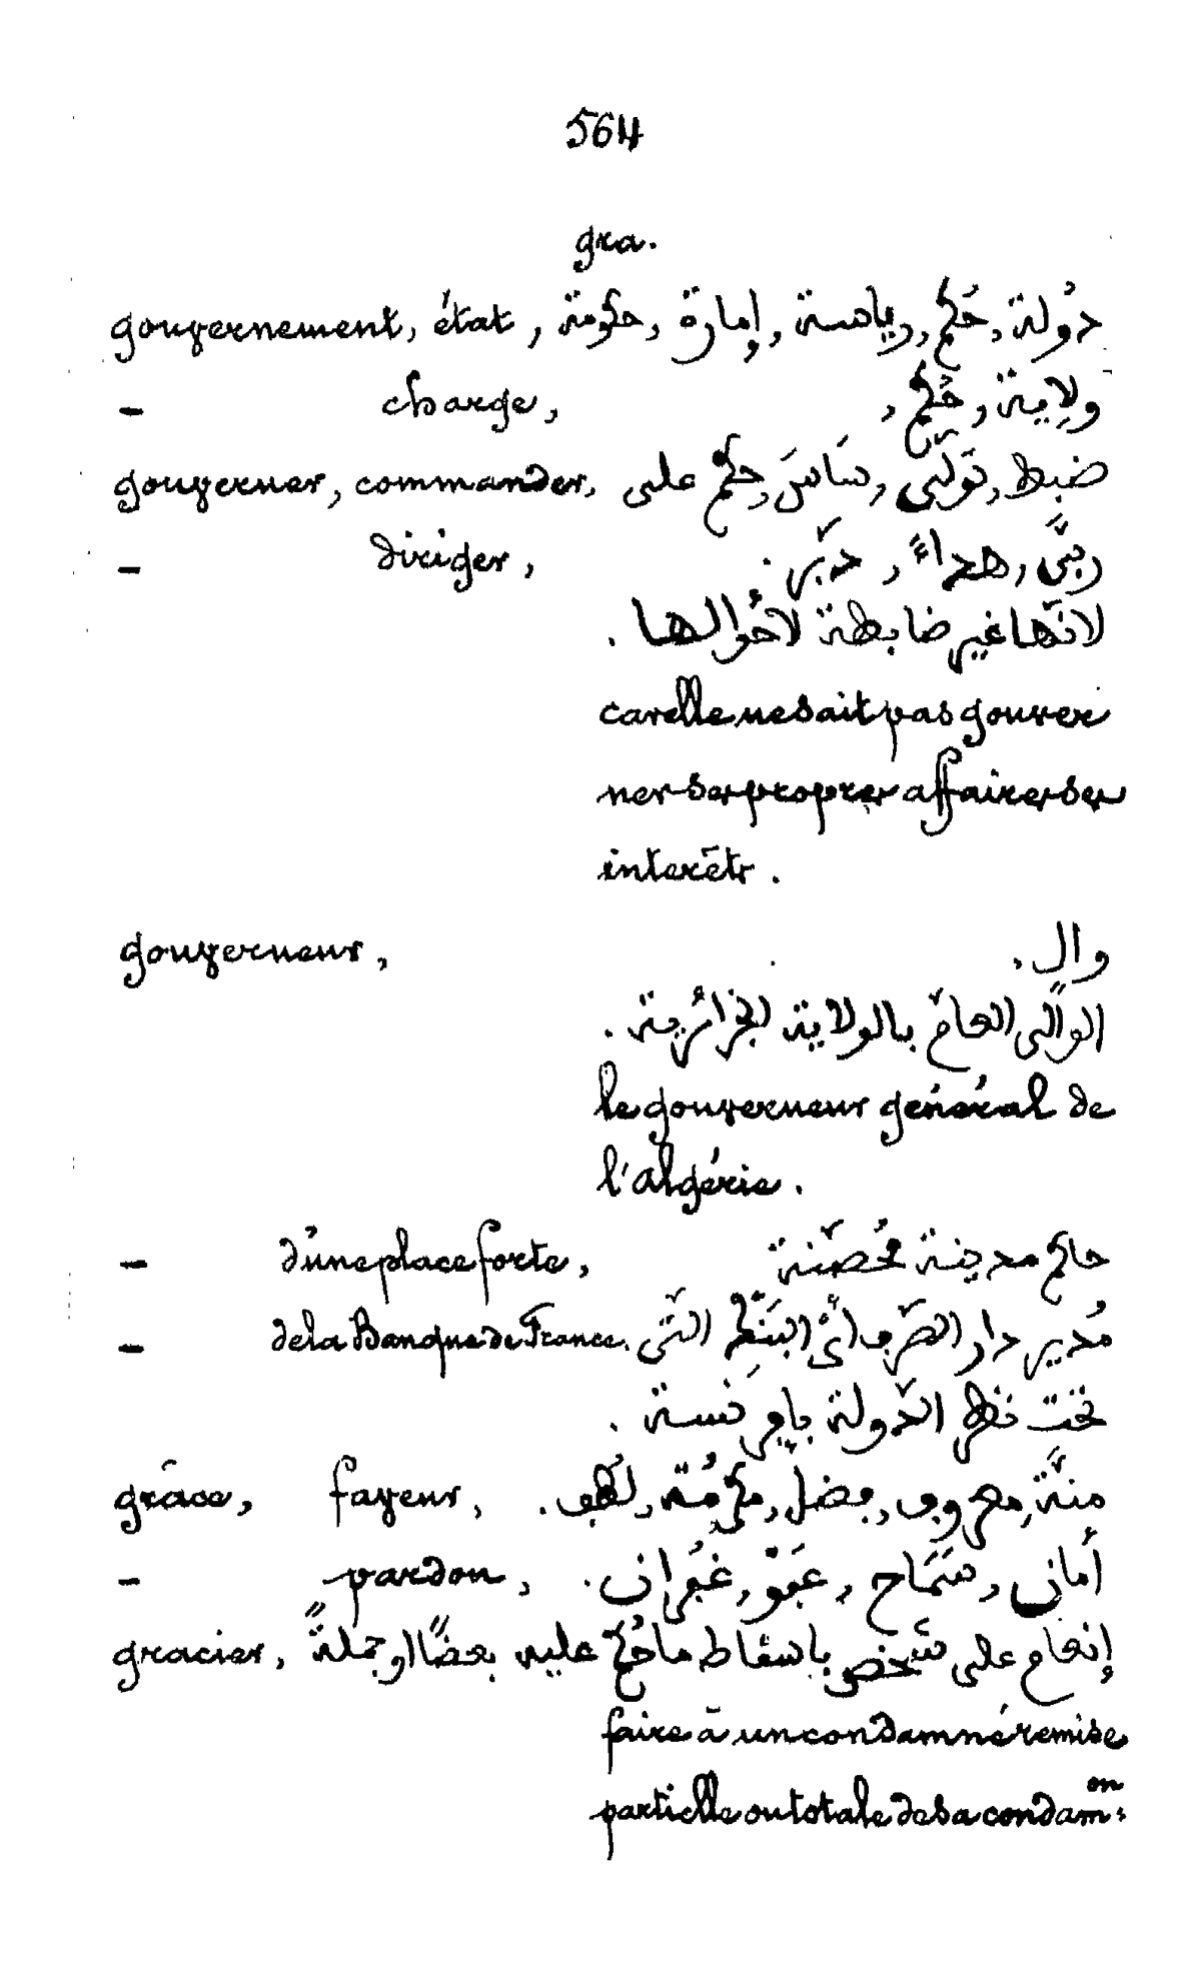 564
gra.
gouvernement, état, دَوْلة, حُكم, رياسة, إمارة, حكومة,
– charge, وِلاية, حُكم,
gouverner, commander, ضبط, تَوَلّى, سَاسَ, حكم على
– diriger, ربَّى, هداءً, دبّر.
لانّها غير ضابطة لاحْوالها.
car elle ne sait pas gouver
ner ses propres affaires ses
interêts.
gouverneur, وال.
الوالي العامّ بالولاية الجزائريّة.
le gouverneur général de
l'algérie.
– d'une place forte, حاكم مدينة مُحصّنة
– de la Banque de France. مُدير دار الصّرف أيْ البَنْك الّتي
تحت نظر الدّولة بافرنسة.
grâce, faveur, منّة, معروف, فضل, مكرُمة, لُطْف.
– pardon, أمان, سَمَاح, عَفْو, غُفْران.
gracier, إنعام على شخص باسقاط ما حُكم عليه بعضًا او جملةً
faire à un condamné remise
partielle ou totale de sa condam^on: